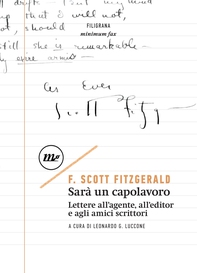 up that I will not,
FILIGRANA
not, should
minimum fax
still she is remarkable —
As Ever
Scott Fitzg
mf
F. SCOTT FITZGERALD
Sarà un capolavoro
Lettere all'agente, all'editor
e agli amici scrittori
A CURA DI LEONARDO G. LUCCONE